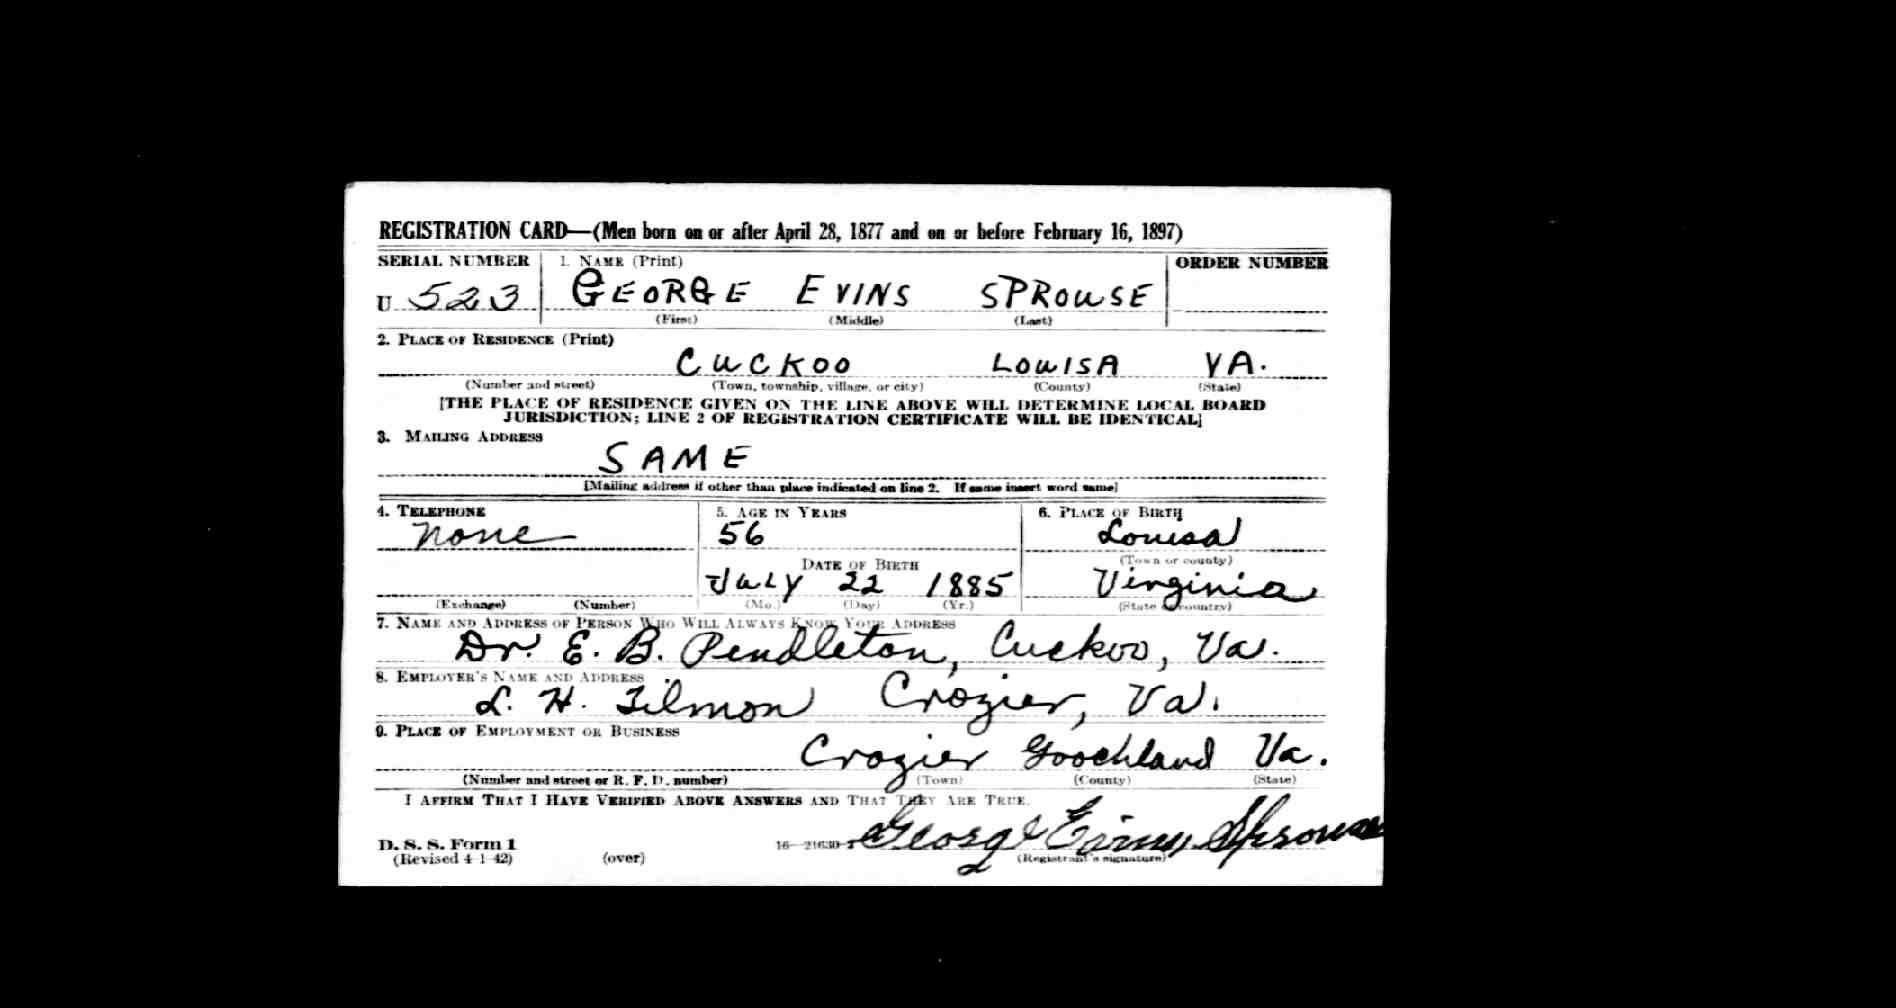 REGISTRATION CARD—(Men born on or after April 28, 1877 and on or before February 16, 1897)
SERIAL NUMBER 1. NAME (Print) ORDER NUMBER
U 523 GEORGE EVINS SPROUSE
(First) (Middle) (Last)
2. PLACE OF RESIDENCE (Print)
CUCKOO LOUISA VA.
(Number and street) (Town, township, village, or city) (County) (State)
[THE PLACE OF RESIDENCE GIVEN ON THE LINE ABOVE WILL DETERMINE LOCAL BOARD
JURISDICTION; LINE 2 OF REGISTRATION CERTIFICATE WILL BE IDENTICAL]
3. MAILING ADDRESS
SAME
[Mailing address if other than place indicated on line 2. If same insert word same]
4. TELEPHONE 5. AGE IN YEARS 6. PLACE OF BIRTH
None 56 Louisa
DATE OF BIRTH (Town or county)
JULY 22 1885 Virginia
(Exchange) (Number) (Mo.) (Day) (Yr.) (State or country)
7. NAME AND ADDRESS OF PERSON WHO WILL ALWAYS KNOW YOUR ADDRESS
Dr. E. B. Pendleton, Cuckoo, Va.
8. EMPLOYER'S NAME AND ADDRESS
L. H. Tilmon Crozier, Va.
9. PLACE OF EMPLOYMENT OR BUSINESS
Crozier Goochland Va.
(Number and street or R. F. D. number) (Town) (County) (State)
I AFFIRM THAT I HAVE VERIFIED ABOVE ANSWERS AND THAT THEY ARE TRUE.
D. S. S. Form 1 16—21630-1 George Evins Sprouse
(Revised 4-1-42) (over) (Registrant's signature)